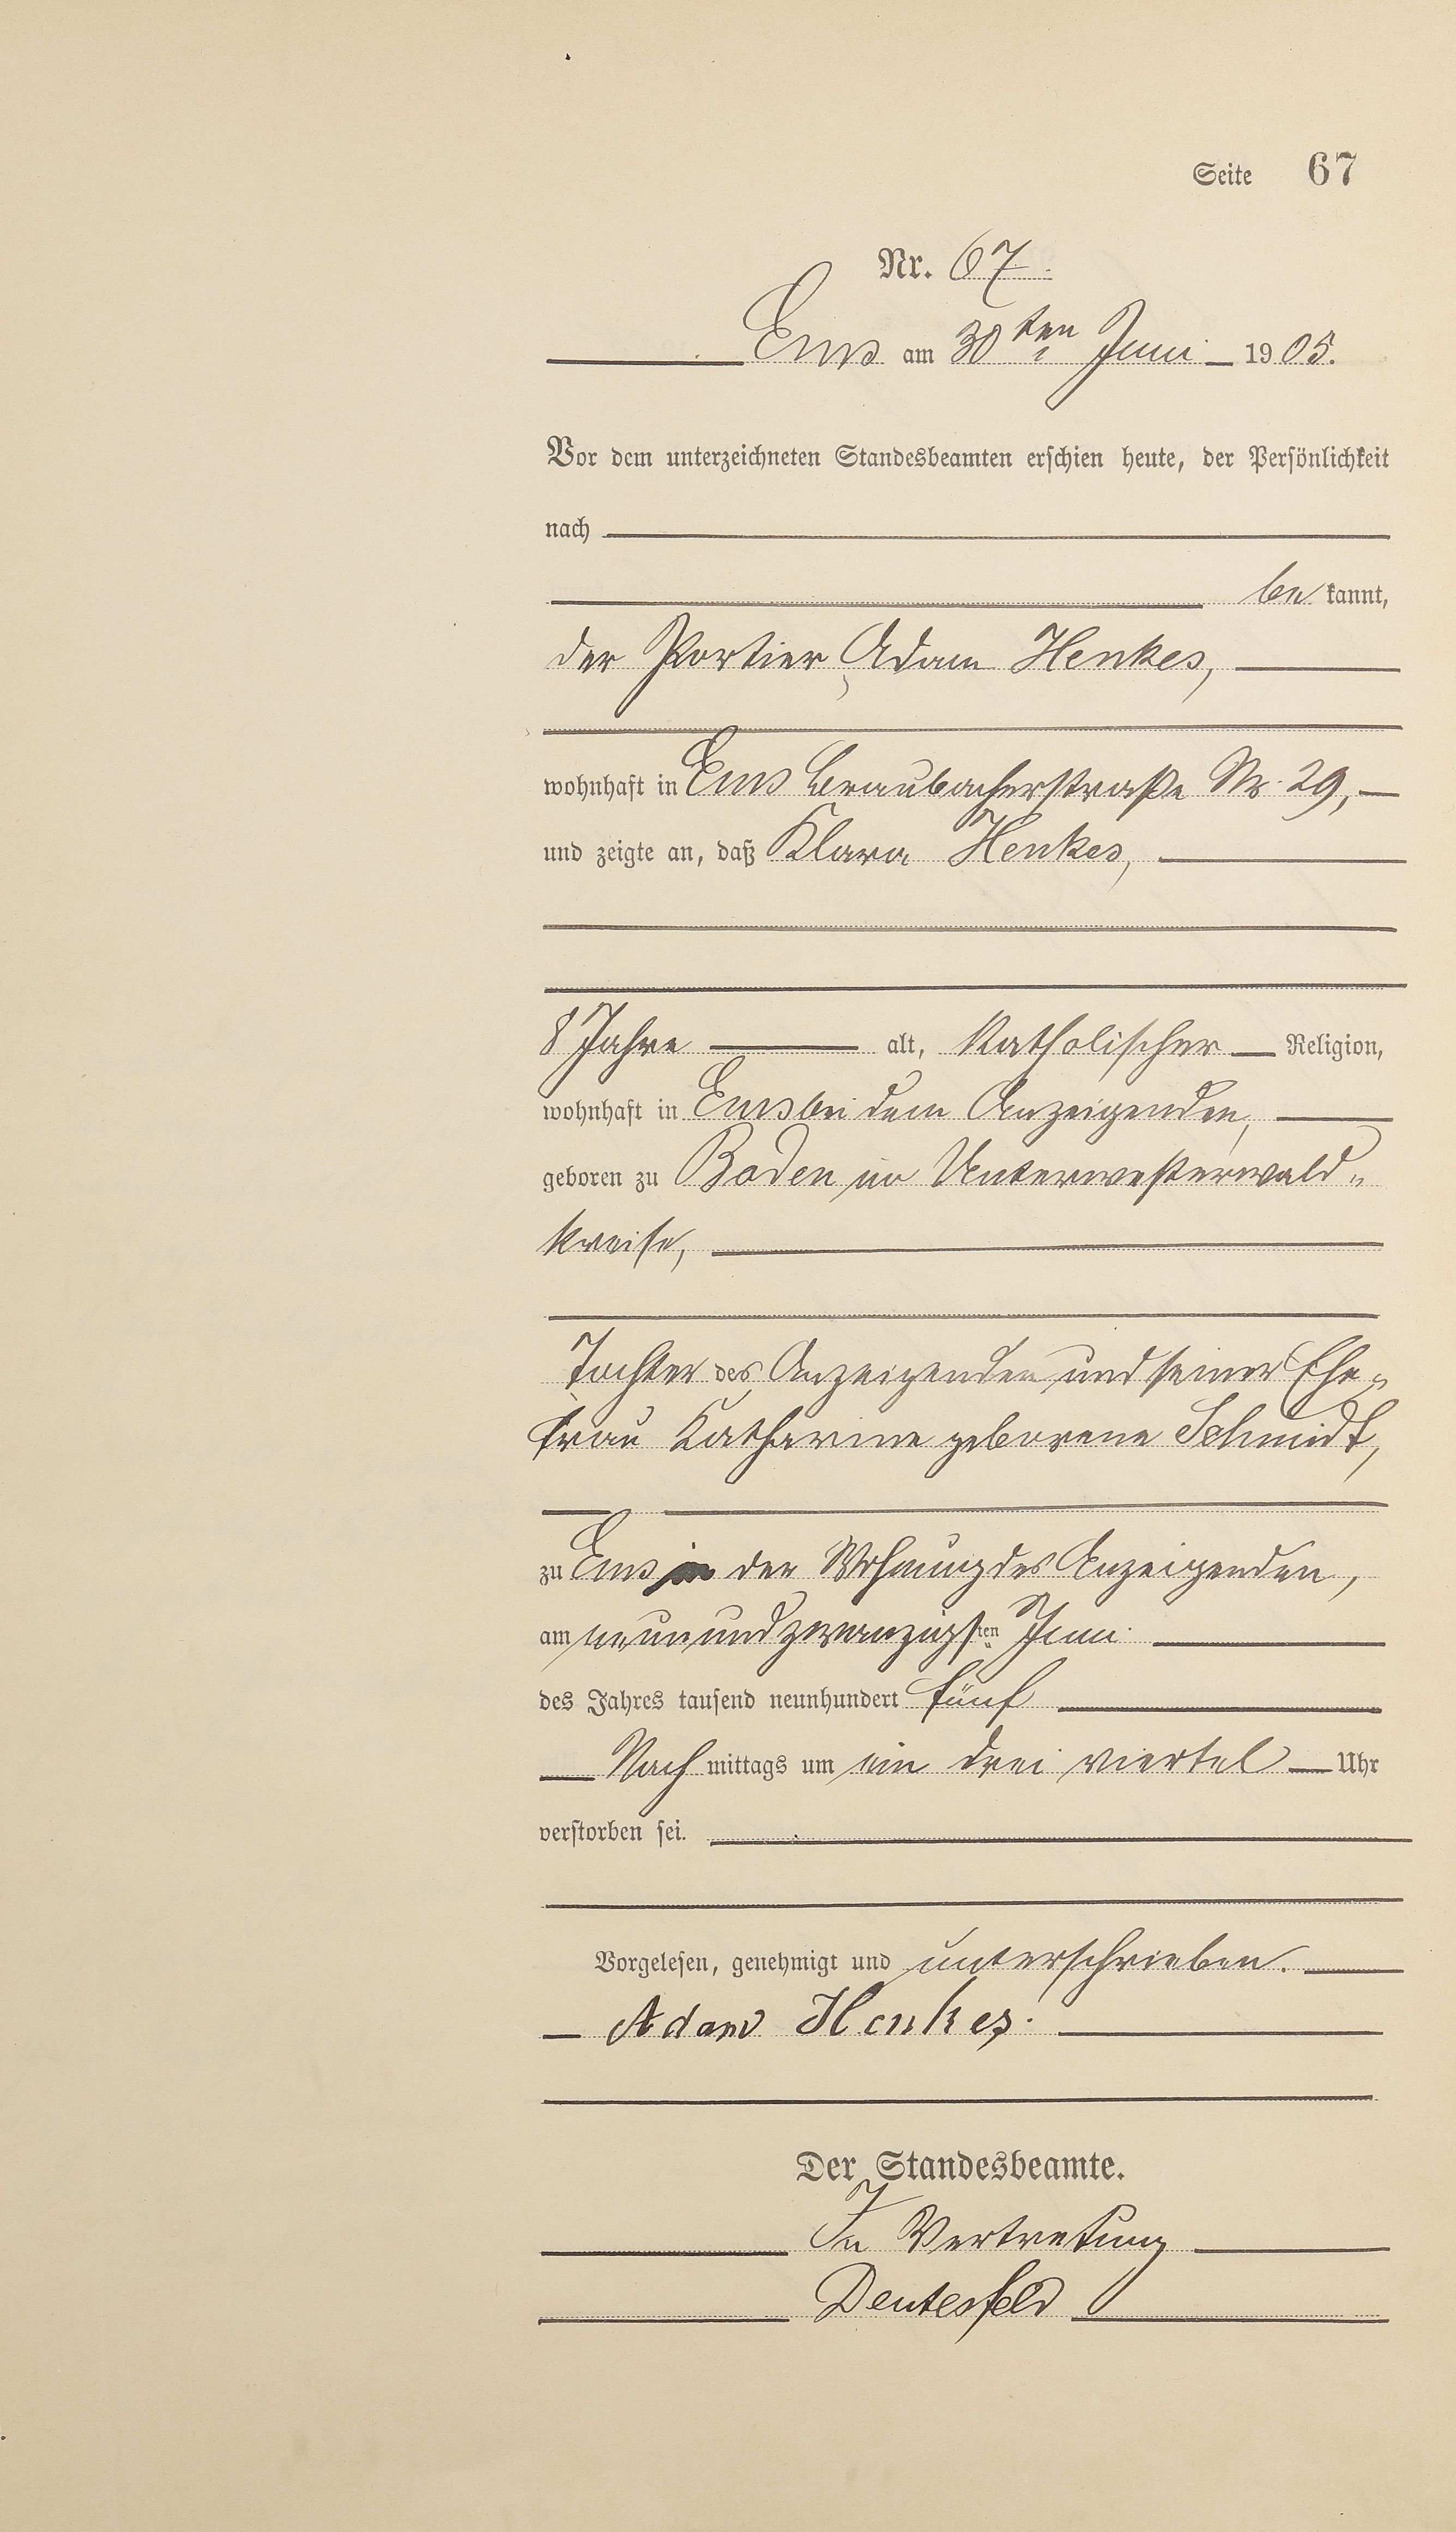 Seite 67
Nr. 67.
Ems am 30ten Juni 1905.
Vor dem unterzeichneten Standesbeamten erschien heute, der Persönlichkeit
nach
be kannt,
der Portier, Adam Henkes,
wohnhaft in Ems Braubacherstraße Nr. 29,
und zeigte an, daß Klara Henkes,
8 Jahre alt, katholischer Religion,
wohnhaft in Ems bei dem Anzeigenden,
geboren zu Baden im Unterwesterwald„
kreise,
Tochter des Anzeigenden und seiner Ehe„
frau Katharine geborene Schmidt,
zu Ems in der Wohnung des Anzeigenden,
am neunundzwanzigsten Juni
des Jahres tausend neunhundert fünf
Nach mittags um ein drei viertel Uhr
verstorben sei.
Vorgelesen, genehmigt und unterschrieben.
Adam Henkes.
Der Standesbeamte.
In Vertretung